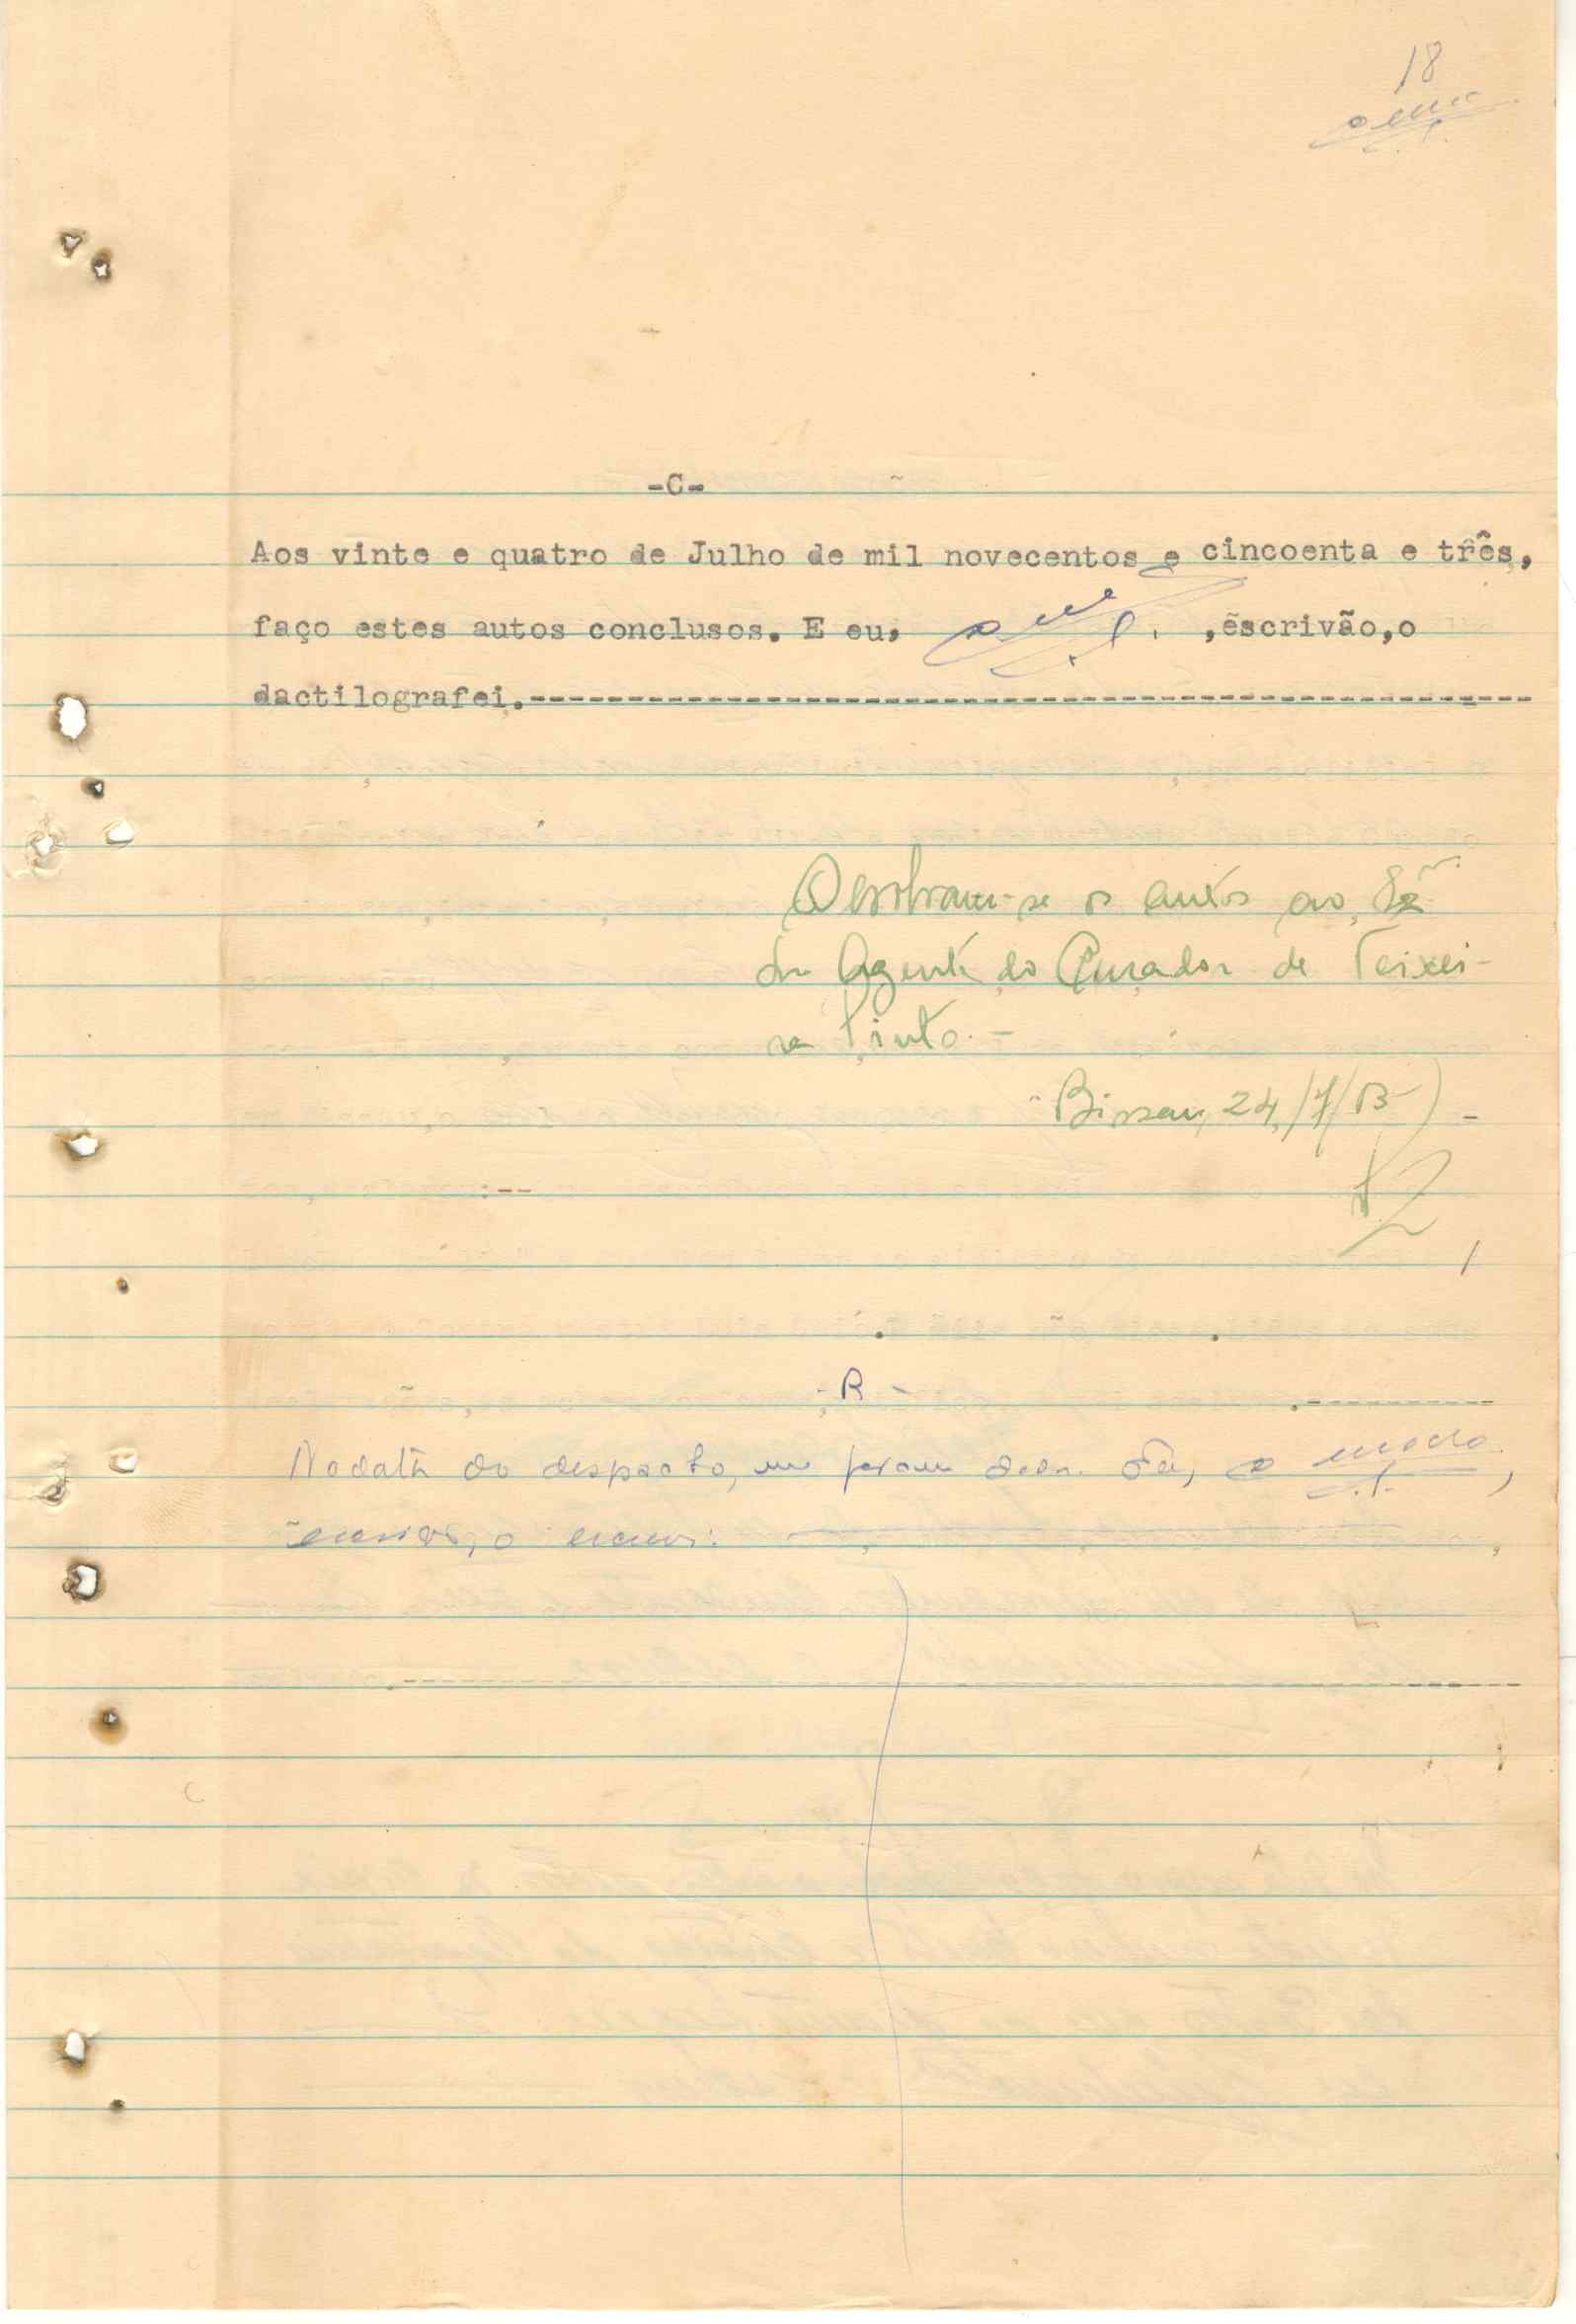 18
-C-
Aos vinte e quatro de Julho de mil novecentos e cincoenta e três,
faço estes autos conclusos. E eu, , escrivão, o
dactilografei.-----------------------------------------------------
Devolvam-se os autos ao
Agente do Curador de Teixei-
ra Pinto. -
Bissau, 24/7/53 -
- R -
Na data do despacho, me foram dados. Eu,
escrivão, o escrevi.